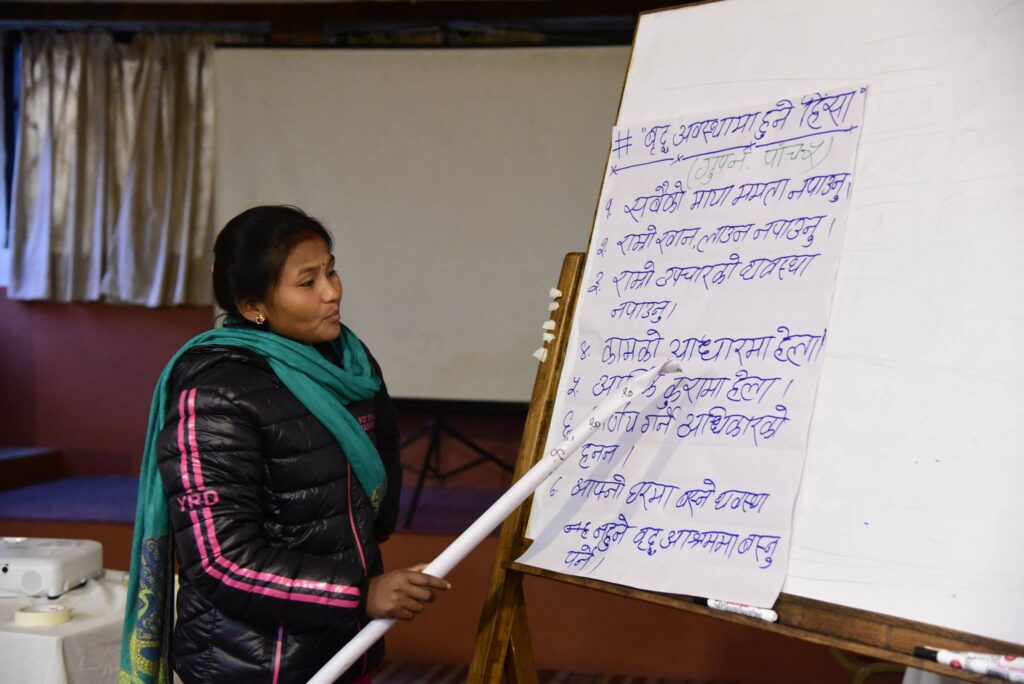 # "बृद्ध अवस्थामा हुने हिंसा"
(ग्रुप नं. पाँच ५)
१. सबैको माया ममता नपाउनु।
२. राम्रो खान, लाउन नपाउनु।
३. राम्रो उपचारको व्यवस्था
नपाउनु।
४. कामको आधारमा हेला।
५. आर्थिक कुरामा हेला।
६. गर्ने अधिकारको
हनन।
७. आफ्नो घरमा बस्ने
नहुने वृद्ध आश्रममा बस्नु
पर्ने।
YRD